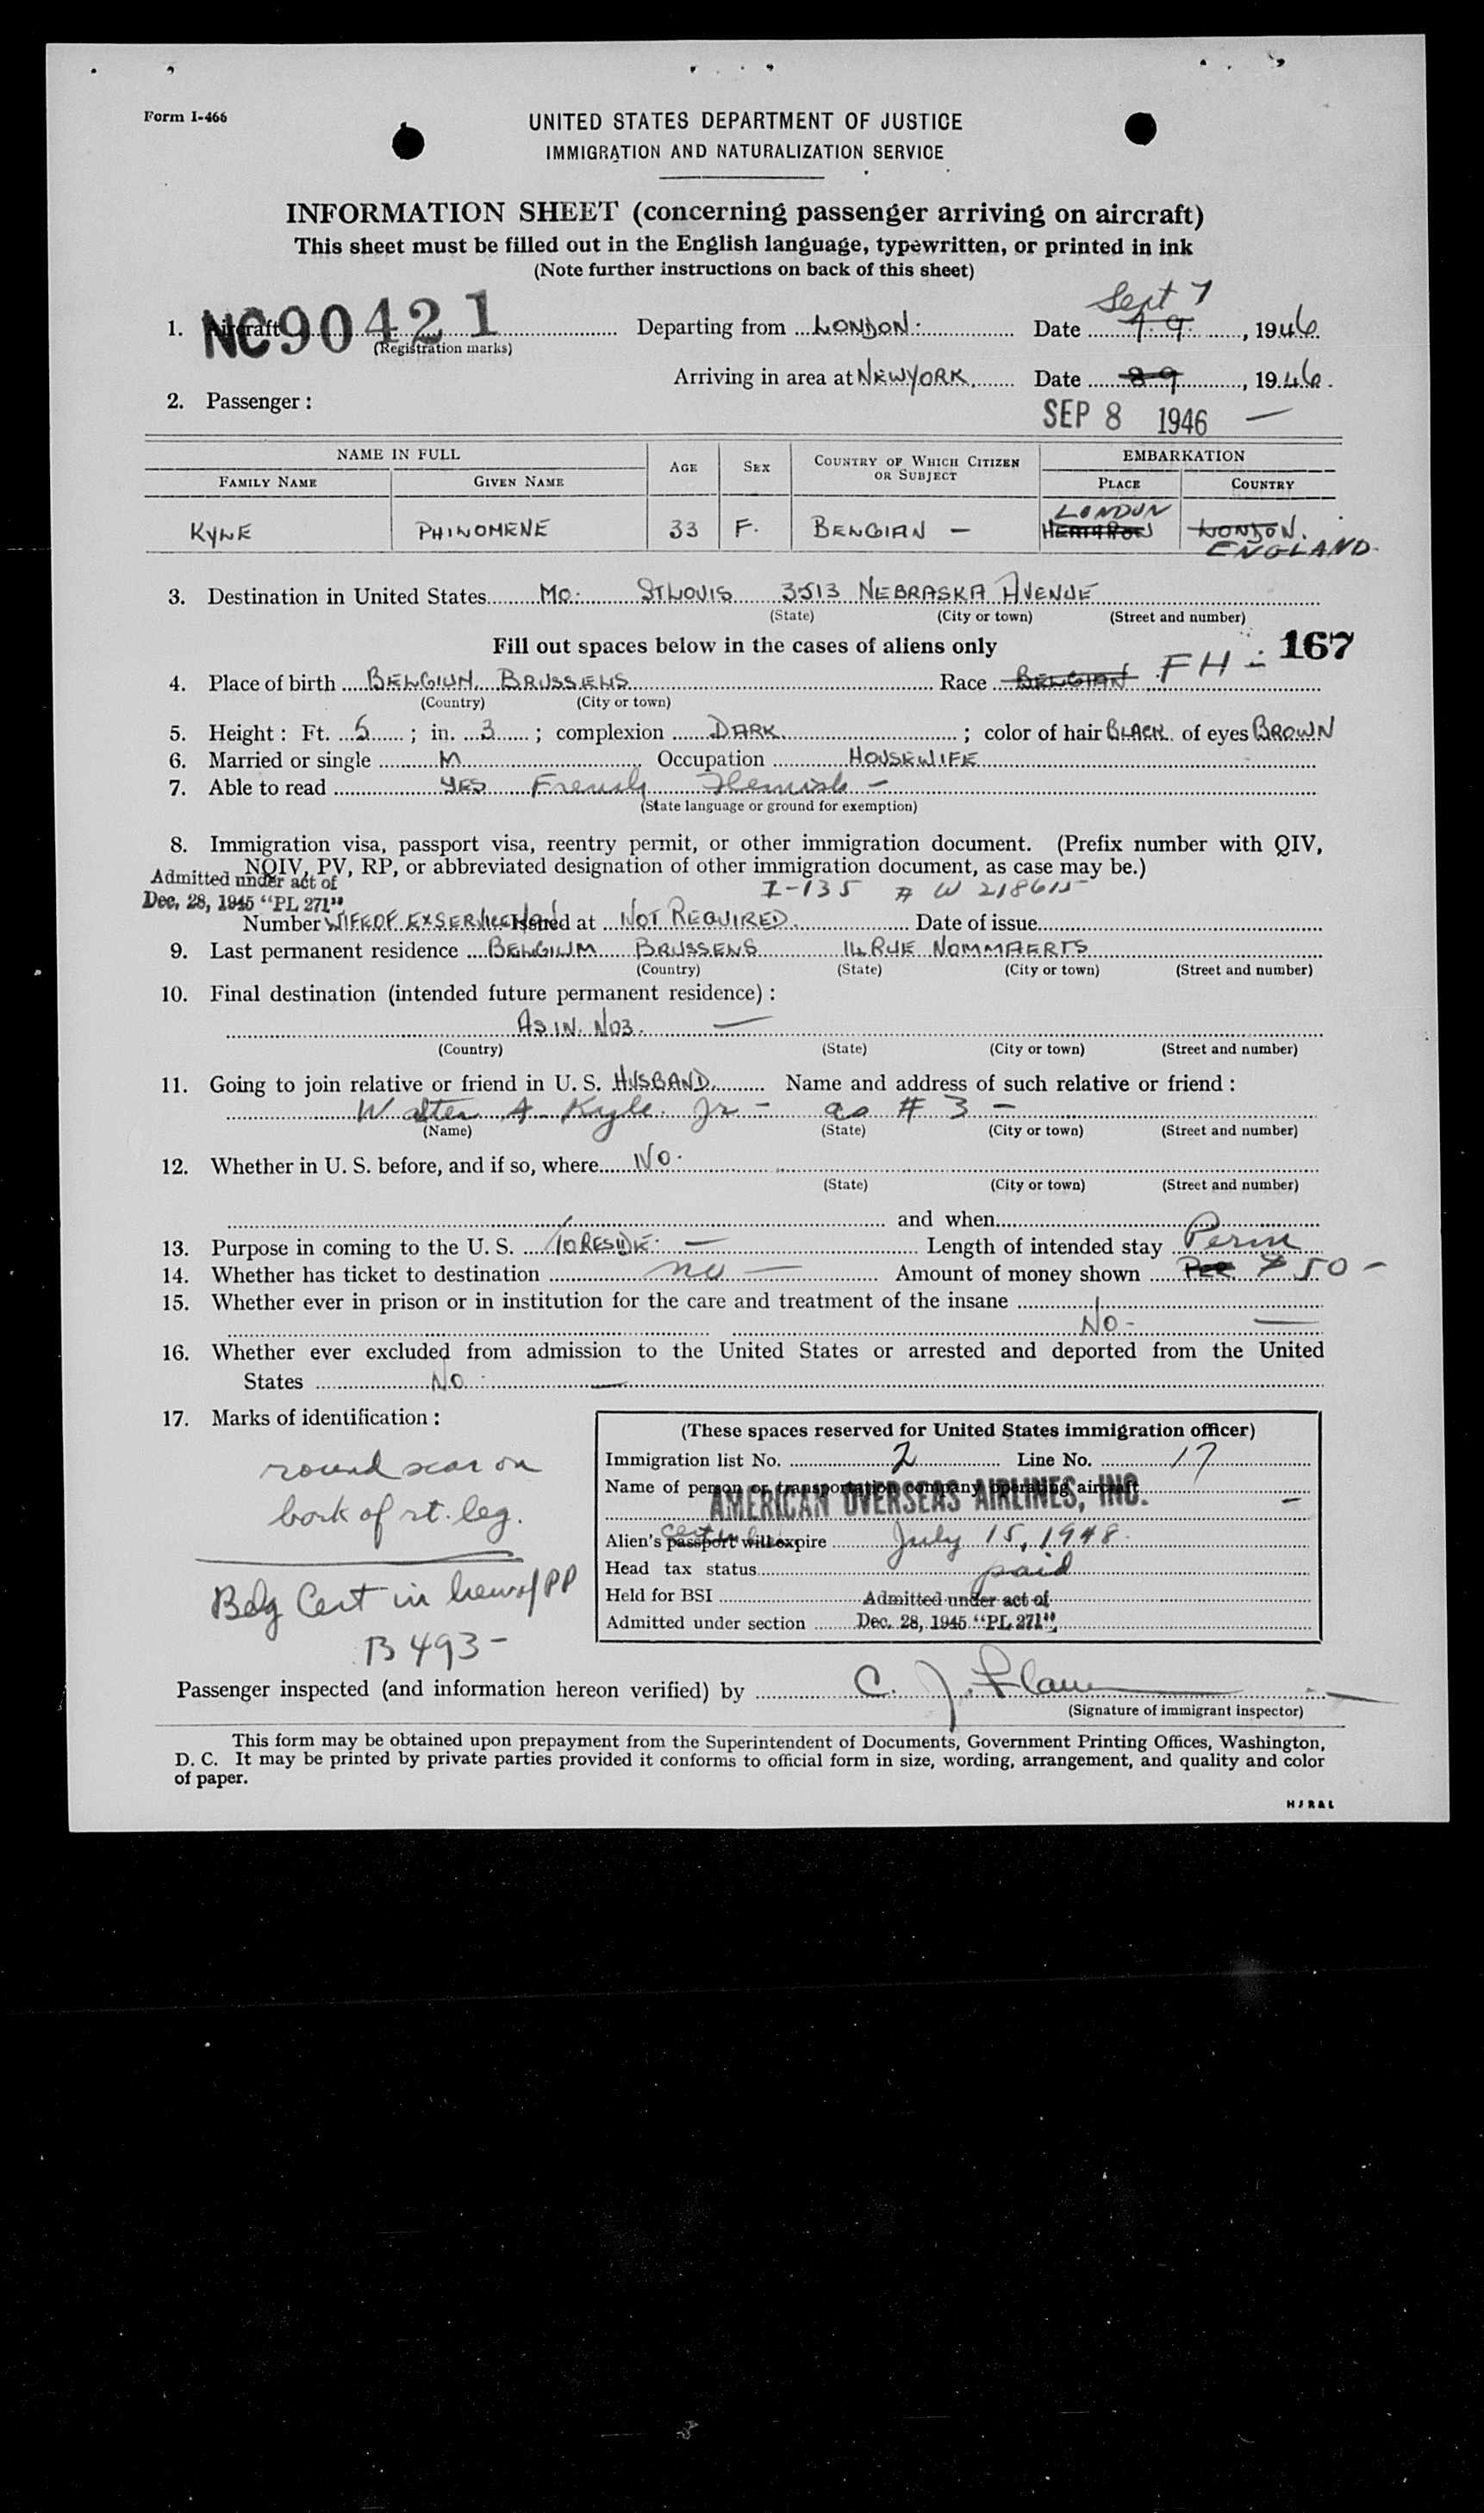 Form I-466
UNITED STATES DEPARTMENT OF JUSTICE
IMMIGRATION AND NATURALIZATION SERVICE
INFORMATION SHEET (concerning passenger arriving on aircraft)
This sheet must be filled out in the English language, typewritten, or printed in ink
(Note further instructions on back of this sheet)
Sept 7
1. Aircraft NC90421 Departing from LONDON. Date 7.9., 1946
(Registration marks)
Arriving in area at NEWYORK. Date 8 9, 1946.
2. Passenger:
SEP 8 1946 —
NAME IN FULL AGE SEX COUNTRY OF WHICH CITIZEN OR SUBJECT EMBARKATION
FAMILY NAME GIVEN NAME PLACE COUNTRY
LONDON
KYLE PHILOMENE 33 F. BELGIAN — HEATHROW LONDON.
ENGLAND.
3. Destination in United States MO. ST LOUIS 3513 NEBRASKA AVENUE
(State) (City or town) (Street and number)
Fill out spaces below in the cases of aliens only
167
4. Place of birth BELGIUM. BRUSSELS Race BELGIAN FH -
(Country) (City or town)
5. Height: Ft. 5; in. 3; complexion DARK; color of hair BLACK of eyes BROWN
6. Married or single M Occupation HOUSEWIFE
7. Able to read YES French Flemish -
(State language or ground for exemption)
8. Immigration visa, passport visa, reentry permit, or other immigration document. (Prefix number with QIV,
NQIV, PV, RP, or abbreviated designation of other immigration document, as case may be.)
Admitted under act of
Dec. 28, 1945 "PL 271"
I-135 # W 218615
Number WIFE OF EX SERVICEMAN Issued at NOT REQUIRED. Date of issue
9. Last permanent residence BELGIUM BRUSSELS 14 RUE NOMMAERTS
(Country) (State) (City or town) (Street and number)
10. Final destination (intended future permanent residence):
AS IN. NO3. —
(Country) (State) (City or town) (Street and number)
11. Going to join relative or friend in U. S. HUSBAND. Name and address of such relative or friend:
Walter A Kyle Jr - as # 3 -
(Name) (State) (City or town) (Street and number)
12. Whether in U. S. before, and if so, where NO.
(State) (City or town) (Street and number)
and when
13. Purpose in coming to the U. S. TO RESIDE. — Length of intended stay Perm
14. Whether has ticket to destination no — Amount of money shown $50 -
15. Whether ever in prison or in institution for the care and treatment of the insane
NO -
16. Whether ever excluded from admission to the United States or arrested and deported from the United
States NO.
17. Marks of identification:
round scar on
back of rt. leg.
Belg Cert in lieu of PP
B 493 -
(These spaces reserved for United States immigration officer)
Immigration list No. 2 Line No. 17
Name of person or transportation company operating aircraft
AMERICAN OVERSEAS AIRLINES, INC.
Alien's passport will expire July 15, 1948.
Head tax status paid
Held for BSI Admitted under act of
Admitted under section Dec. 28, 1945 "PL 271"
Passenger inspected (and information hereon verified) by C. J.
(Signature of immigrant inspector)
This form may be obtained upon prepayment from the Superintendent of Documents, Government Printing Offices, Washington,
D. C. It may be printed by private parties provided it conforms to official form in size, wording, arrangement, and quality and color
of paper.
HJR&L